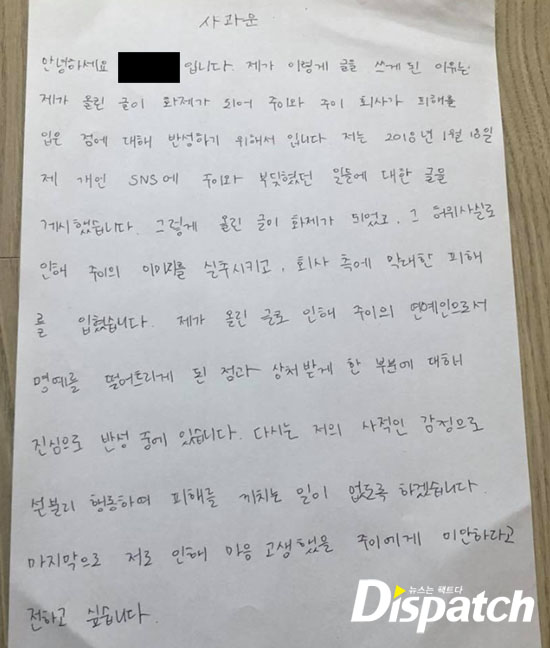 사과문
안녕하세요 입니다. 제가 이렇게 글을 쓰게 된 이유는
제가 올린 글이 화제가 되어 주이와 주이 회사가 피해를
입은 점에 대해 반성하기 위해서 입니다 저는 2018년 1월 18일
제 개인 SNS에 주이와 부딪혔던 일들에 대한 글을
게시했습니다. 그렇게 올린 글이 화제가 되었고, 그 허위사실로
인해 주이의 이미지를 실추시키고, 회사 측에 막대한 피해
를 입혔습니다. 제가 올린 글로 인해 주이의 연예인으로서
명예를 떨어트리게 된 점과 상처받게 한 부분에 대해서
진심으로 반성 중에 있습니다. 다시는 저의 사적인 감정으로
섣불리 행동하여 피해를 끼치는 일이 없도록 하겠습니다.
마지막으로 저로 인해 마음 고생했을 주이에게 미안하다고
전하고 싶습니다.
뉴스는 팩트다
Dispatch